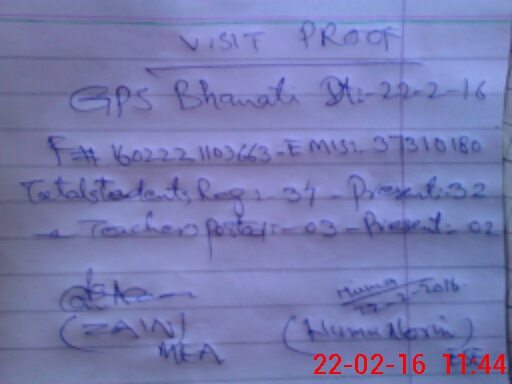 VISIT PROOF
GPS Bhanati Dt:-22-2-16
F# 1602221103663-EMIS:. 37310180
Total students Reg:- 34 - Present:32
Teachers posted:- 03 - Present:- 02
Huma
22-2-2016
(ZAIN) (Huma Norin)
MEA
22-02-16 11:44